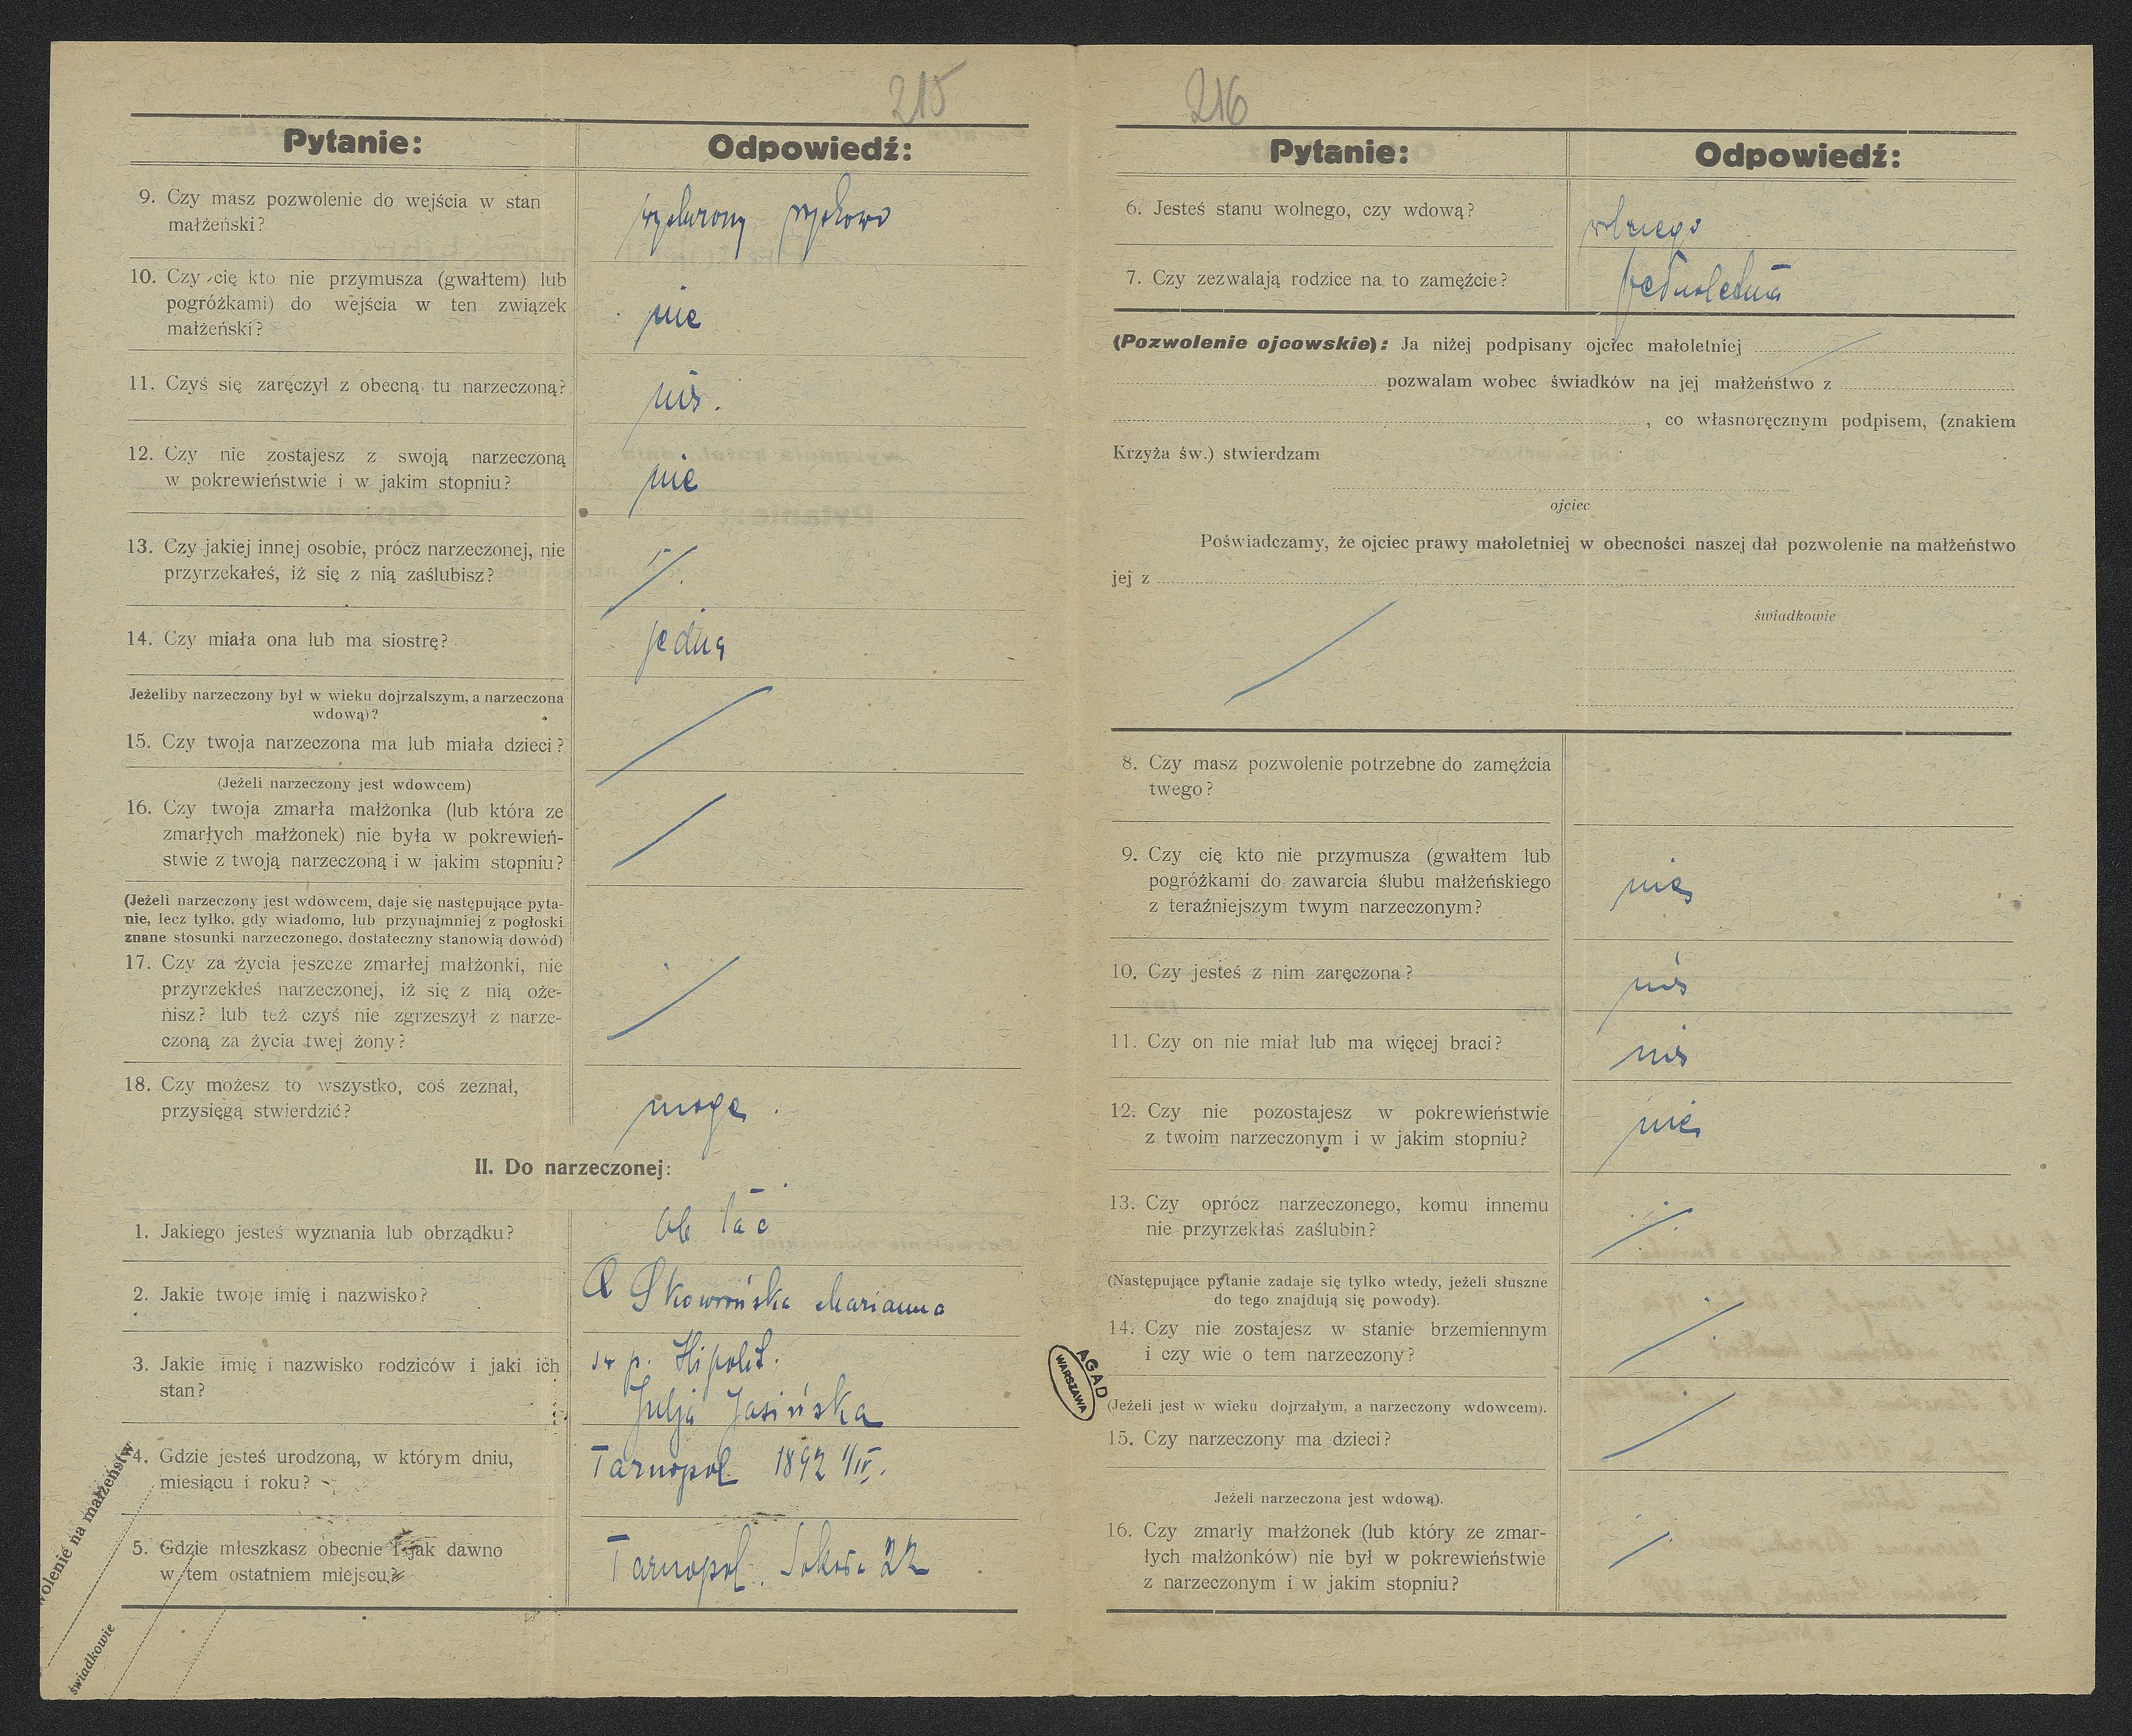 215
Pytanie:
Odpowiedź:
9. Czy masz pozwolenie do wejścia w stan
małżeński?
10. Czy cię kto nie przymusza (gwałtem) lub
pogróżkami) do wejścia w ten związek
małżeński?
nie
11. Czyś się zaręczył z obecną tu narzeczoną?
nie.
12. Czy nie zostajesz z swoją narzeczoną
w pokrewieństwie i w jakim stopniu?
nie
13. Czy jakiej innej osobie, prócz narzeczonej, nie
przyrzekałeś, iż się z nią zaślubisz?
14. Czy miała ona lub ma siostrę?
jedną
Jeżeliby narzeczony był w wieku dojrzalszym, a narzeczona
wdową)?
15. Czy twoja narzeczona ma lub miała dzieci?
(Jeżeli narzeczony jest wdowcem)
16. Czy twoja zmarła małżonka (lub która ze
zmarłych małżonek) nie była w pokrewień-
stwie z twoją narzeczoną i w jakim stopniu?
(Jeżeli narzeczony jest wdowcem, daje się następujące pyta-
nie, lecz tylko, gdy wiadomo, lub przynajmniej z pogłoski
znane stosunki narzeczonego, dostateczny stanowią dowód)
17. Czy za życia jeszcze zmarłej małżonki, nie
przyrzekłeś narzeczonej, iż się z nią oże-
nisz? lub też czyś nie zgrzeszył z narze-
czoną za życia twej żony?
18. Czy możesz to wszystko, coś zeznał,
przysięgą stwierdzić?
mogę.
II. Do narzeczonej:
1. Jakiego jesteś wyznania lub obrządku?
ob łać
2. Jakie twoje imię i nazwisko?
Skowrońska Marianna
3. Jakie imię i nazwisko rodziców i jaki ich
stan?
p. Hipolit.
Julja Jasińska
4. Gdzie jesteś urodzoną, w którym dniu,
miesiącu i roku?
Tarnopol 1892 1/IV.
5. Gdzie mieszkasz obecnie i jak dawno
w tem ostatniem miejscu?
Tarnopol. 22
wolenie na małżeństw
świadkowie
216
Pytanie:
Odpowiedź:
6. Jesteś stanu wolnego, czy wdową?
wolnego
7. Czy zezwalają rodzice na to zamęźcie?
pełnoletnia
(Pozwolenie ojcowskie): Ja niżej podpisany ojciec małoletniej
pozwalam wobec świadków na jej małżeństwo z
, co własnoręcznym podpisem, (znakiem
Krzyża św.) stwierdzam
ojciec
Poświadczamy, że ojciec prawy małoletniej w obecności naszej dał pozwolenie na małżeństwo
jej z
świadkowie
8. Czy masz pozwolenie potrzebne do zamęźcia
twego?
9. Czy cię kto nie przymusza (gwałtem lub
pogróżkami do zawarcia ślubu małżeńskiego
z teraźniejszym twym narzeczonym?
nie
10. Czy jesteś z nim zaręczona?
nie
11. Czy on nie miał lub ma więcej braci?
nie
12. Czy nie pozostajesz w pokrewieństwie
z twoim narzeczonym i w jakim stopniu?
nie
13. Czy oprócz narzeczonego, komu innemu
nie przyrzekłaś zaślubin?
(Następujące pytanie zadaje się tylko wtedy, jeżeli słuszne
do tego znajdują się powody).
14. Czy nie zostajesz w stanie brzemiennym
i czy wie o tem narzeczony?
AGAD
WARSZAWA
(Jeżeli jest w wieku dojrzałym, a narzeczony wdowcem).
15. Czy narzeczony ma dzieci?
Jeżeli narzeczona jest wdową).
16. Czy zmarły małżonek (lub który ze zmar-
łych małżonków) nie był w pokrewieństwie
z narzeczonym i w jakim stopniu?